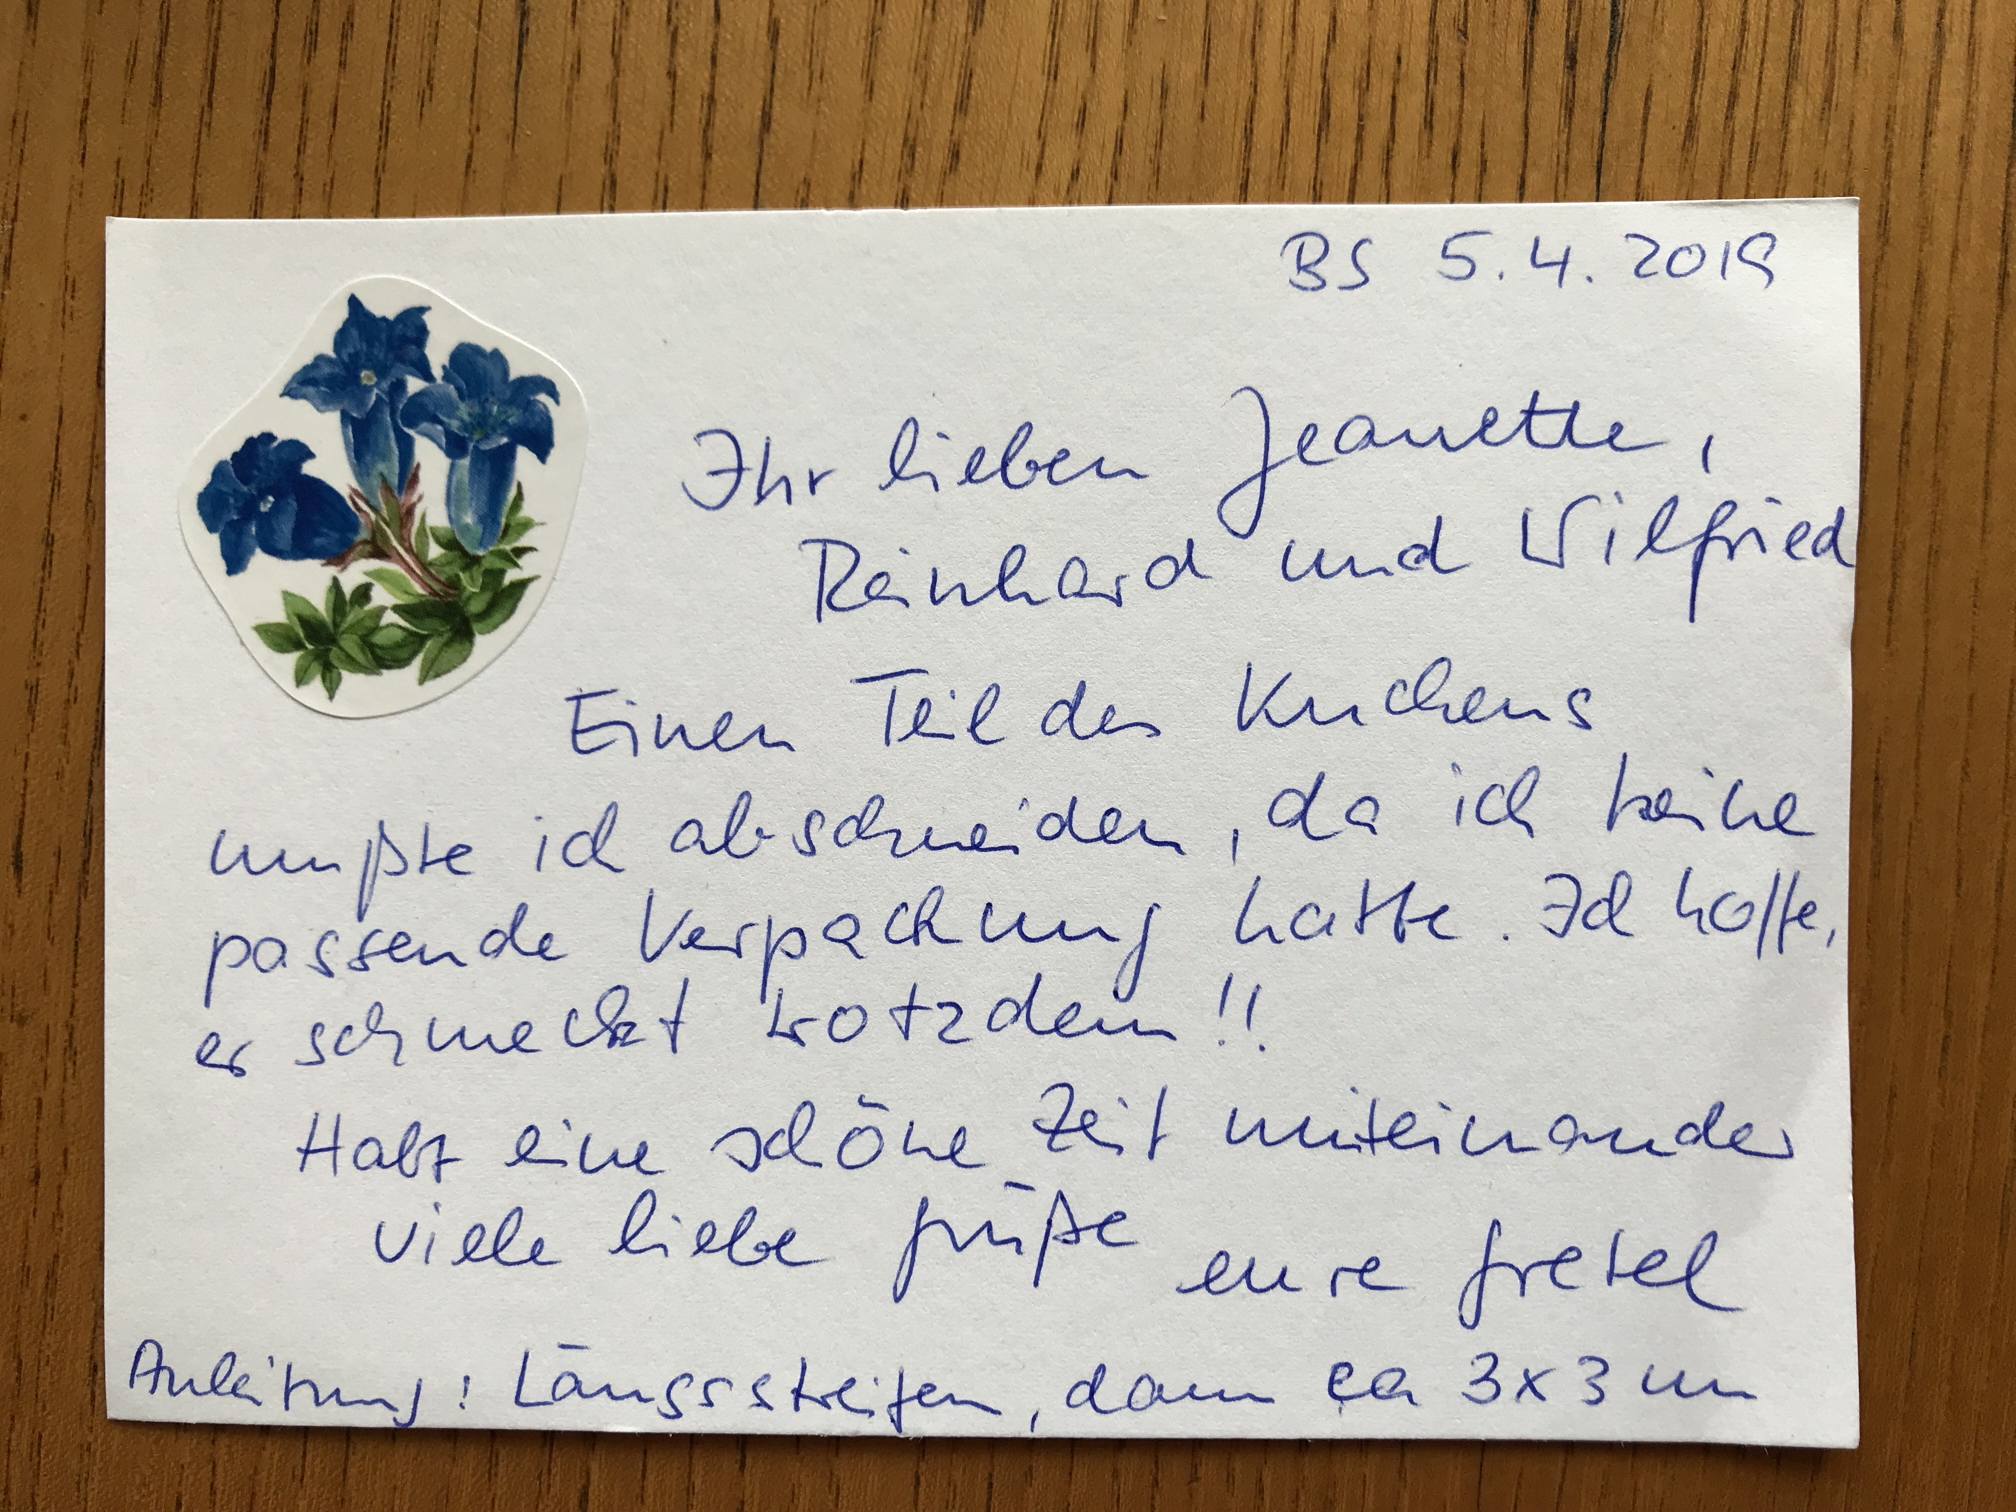 BS 5.4.2019
Ihr lieben Jeanette,
Reinhard und Wilfried
Einen Teil des Kuchens
mußte ich abschneiden, da ich keine
passende Verpackung hatte. Ich hoffe,
er schmeckt trotzdem!!
Habt eine schöne Zeit miteinander
viele liebe Grüße
eure Gretel
Anleitung: Längsstreifen, dann ca 3x3 cm